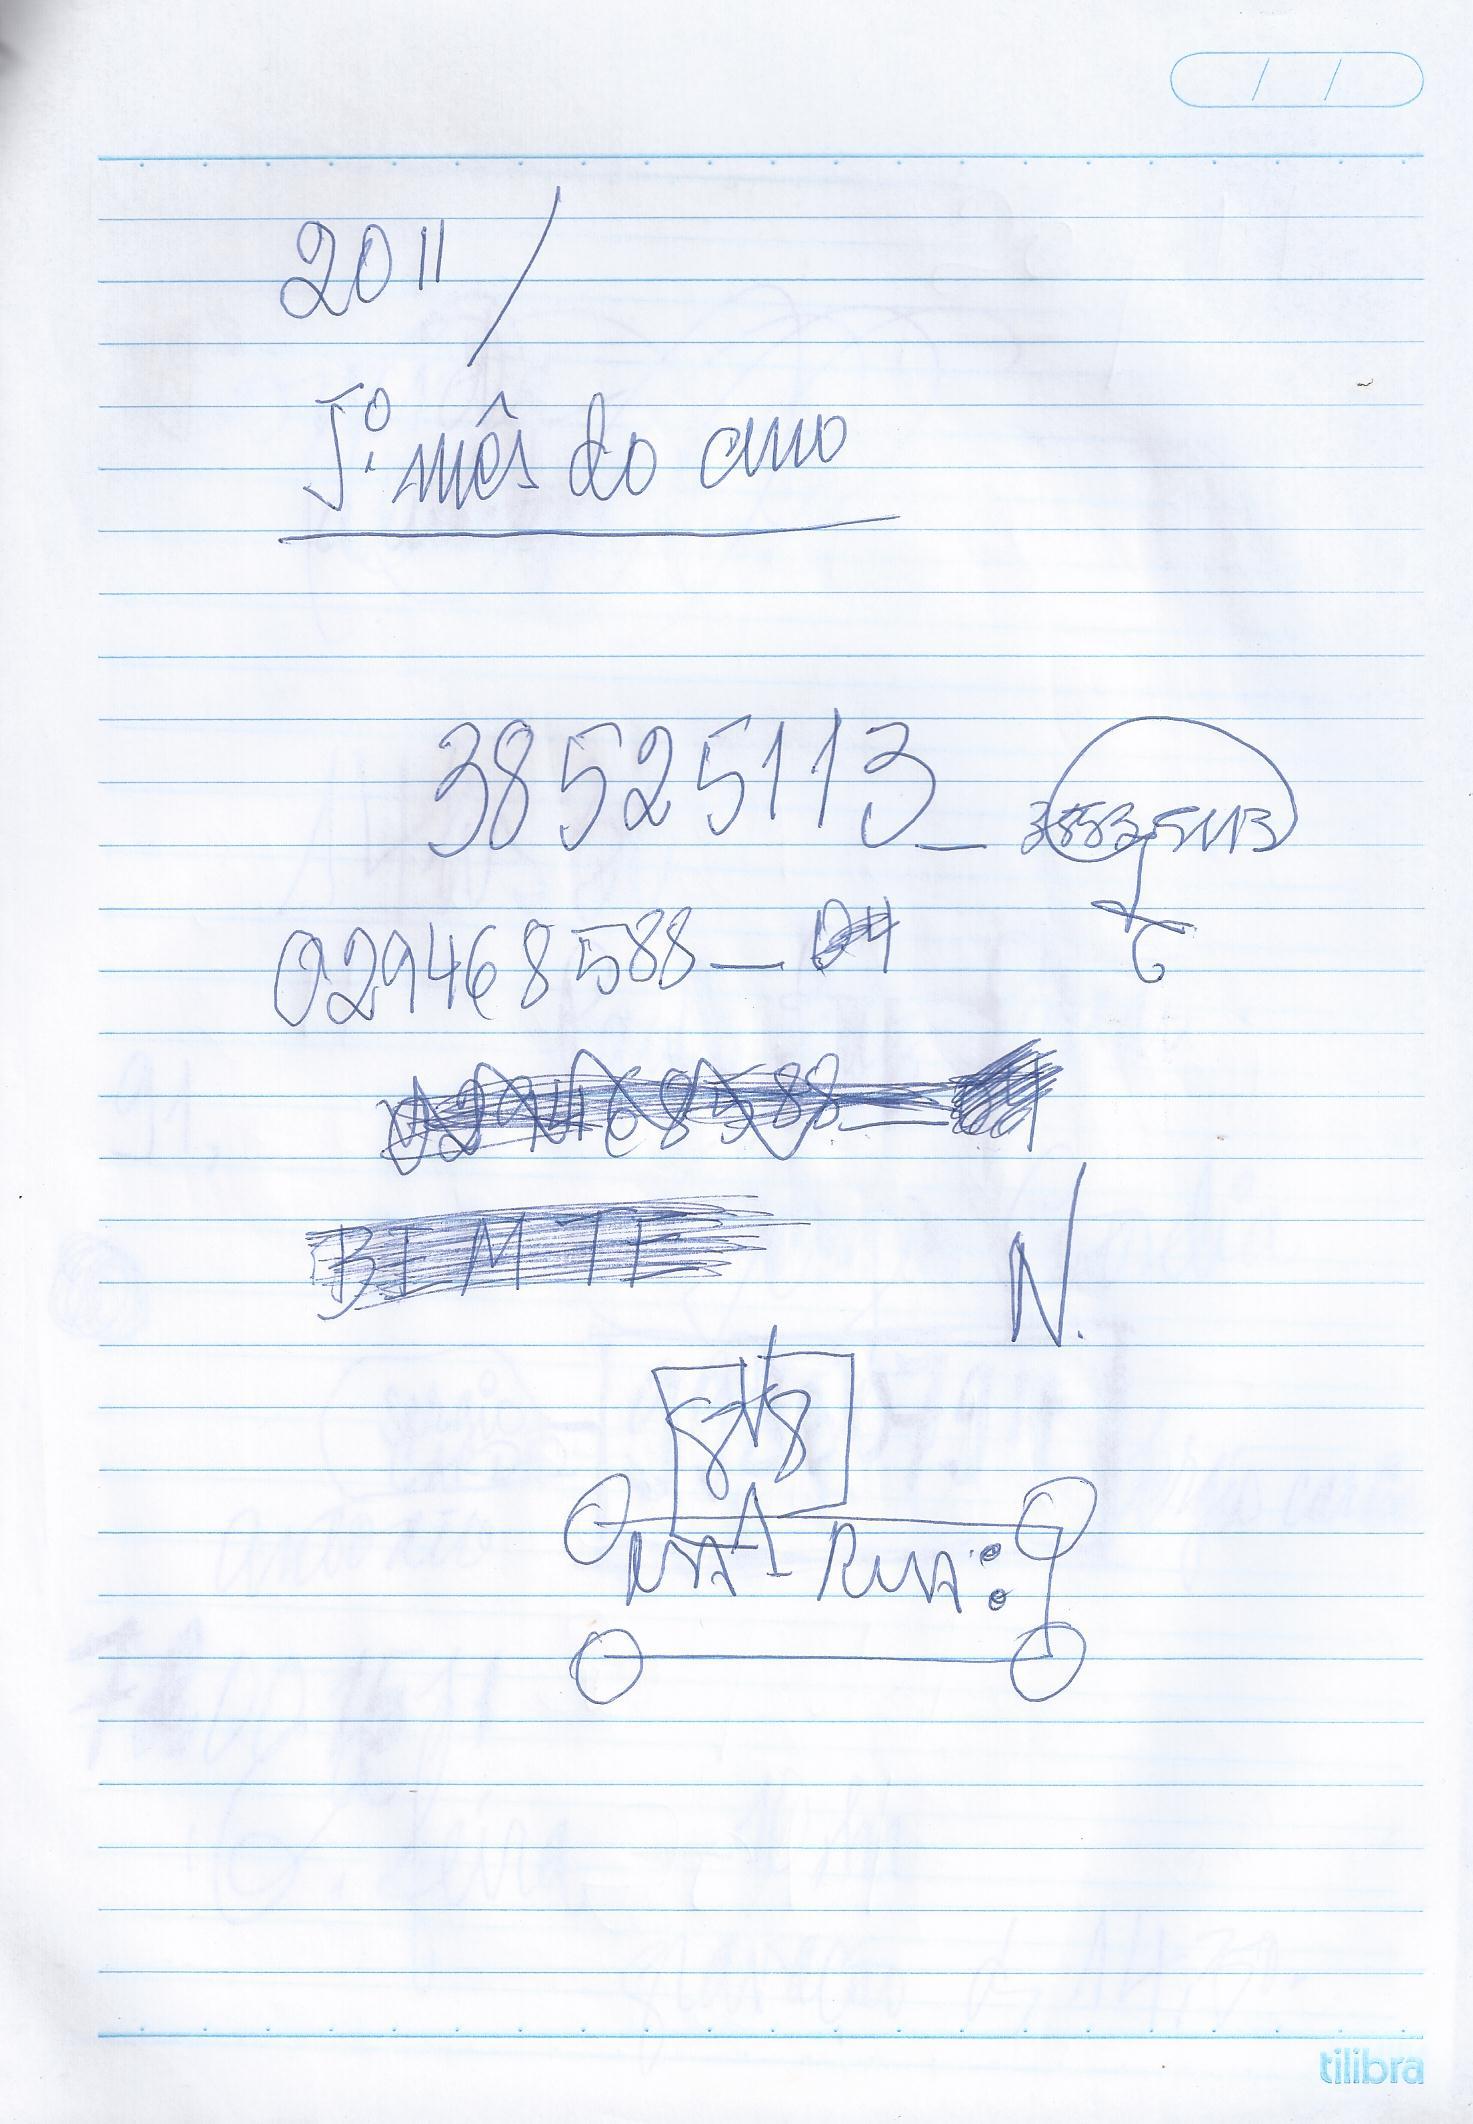 2011/
5º mês do ano
38525113_ 38525113
029468588_04
029468588_04
N.
88
RUA:
tilibra